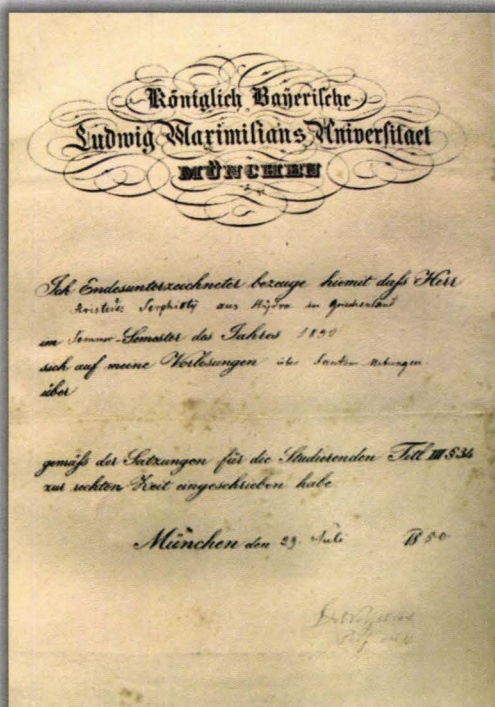 Königlich Bayerische
Ludwig Maximilians Universitaet
MÜNCHEN
Ich Endesunterzeichneter bezeuge hiemit dafs Herr
aus Hydra in Griechenland
im Sommer-Semester des Jahres
sich auf meine Vorlesungen über
über
gemäfs der Satzungen für die Studierenden Titl III § 34
zur rechten Zeit eingeschrieben habe
München den 29. Juli 18 50